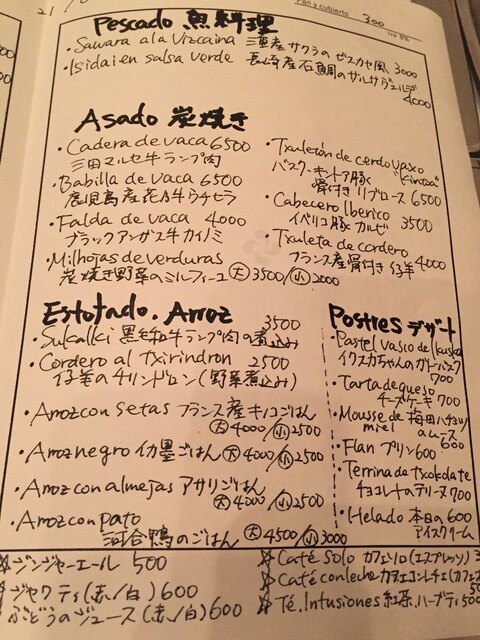 Pan y cubierto 300
iva 8%
Pescado 魚料理
・Sawara a la Vizcaina 三重産サワラのビスカヤ風 3000
・Isidai en salsa verde 長崎産石鯛のサルサヴェルデ 4000
Asado 炭焼き
・Cadera de vaca 6500
三田マルセ牛ランプ肉
・Babilla de vaca 6500
鹿児島産花乃牛ウチヒラ
・Falda de vaca 4000
ブラックアンガス牛カイノミ
・Milhojas de verduras
炭焼き野菜のミルフィーユ 大 3500/小 2000
・Txuletón de cerdo vasco "Kintoa"
バスク・キントア豚
骨付きリブロース 6500
・Cabecero Iberico
イベリコ豚カルビ 3500
・Txuleta de cordero
フランス産骨付き仔羊 4000
Estofado. Arroz
・Sukalki 黒毛和牛ランプ肉の煮込み 3500
・Cordero al txirindron 2500
仔羊のチリンドロン(野菜煮込み)
・Arroz con setas フランス産キノコごはん
大 4000/小 2500
・Arroz negro イカ墨ごはん 大 4000/小 2500
・Arroz con almejas アサリごはん
大 4000/小 2500
・Arroz con pato
河合鴨のごはん 大 4500/小 3000
Postres デザート
・Pastel vasco de Ikuska
イクスカちゃんのガトーバスク
700
・Tarta de queso
チーズケーキ 700
・Mousse de miel 梅田ハチミツのムース
600
・Flan プリン 600
・Terrina de txokolate
チョコレートのテリーヌ 700
・Helado 本日の 600
アイスクリーム
☆ジンジャーエール 500
ジャワティ(赤/白) 600
ぶどうのジュース(赤/白) 600
☆Café Solo カフェソロ(エスプレッソ)
☆Café con leche カフェコンレチェ(カフェ
☆Té. Intusiones 紅茶.ハーブティ 500